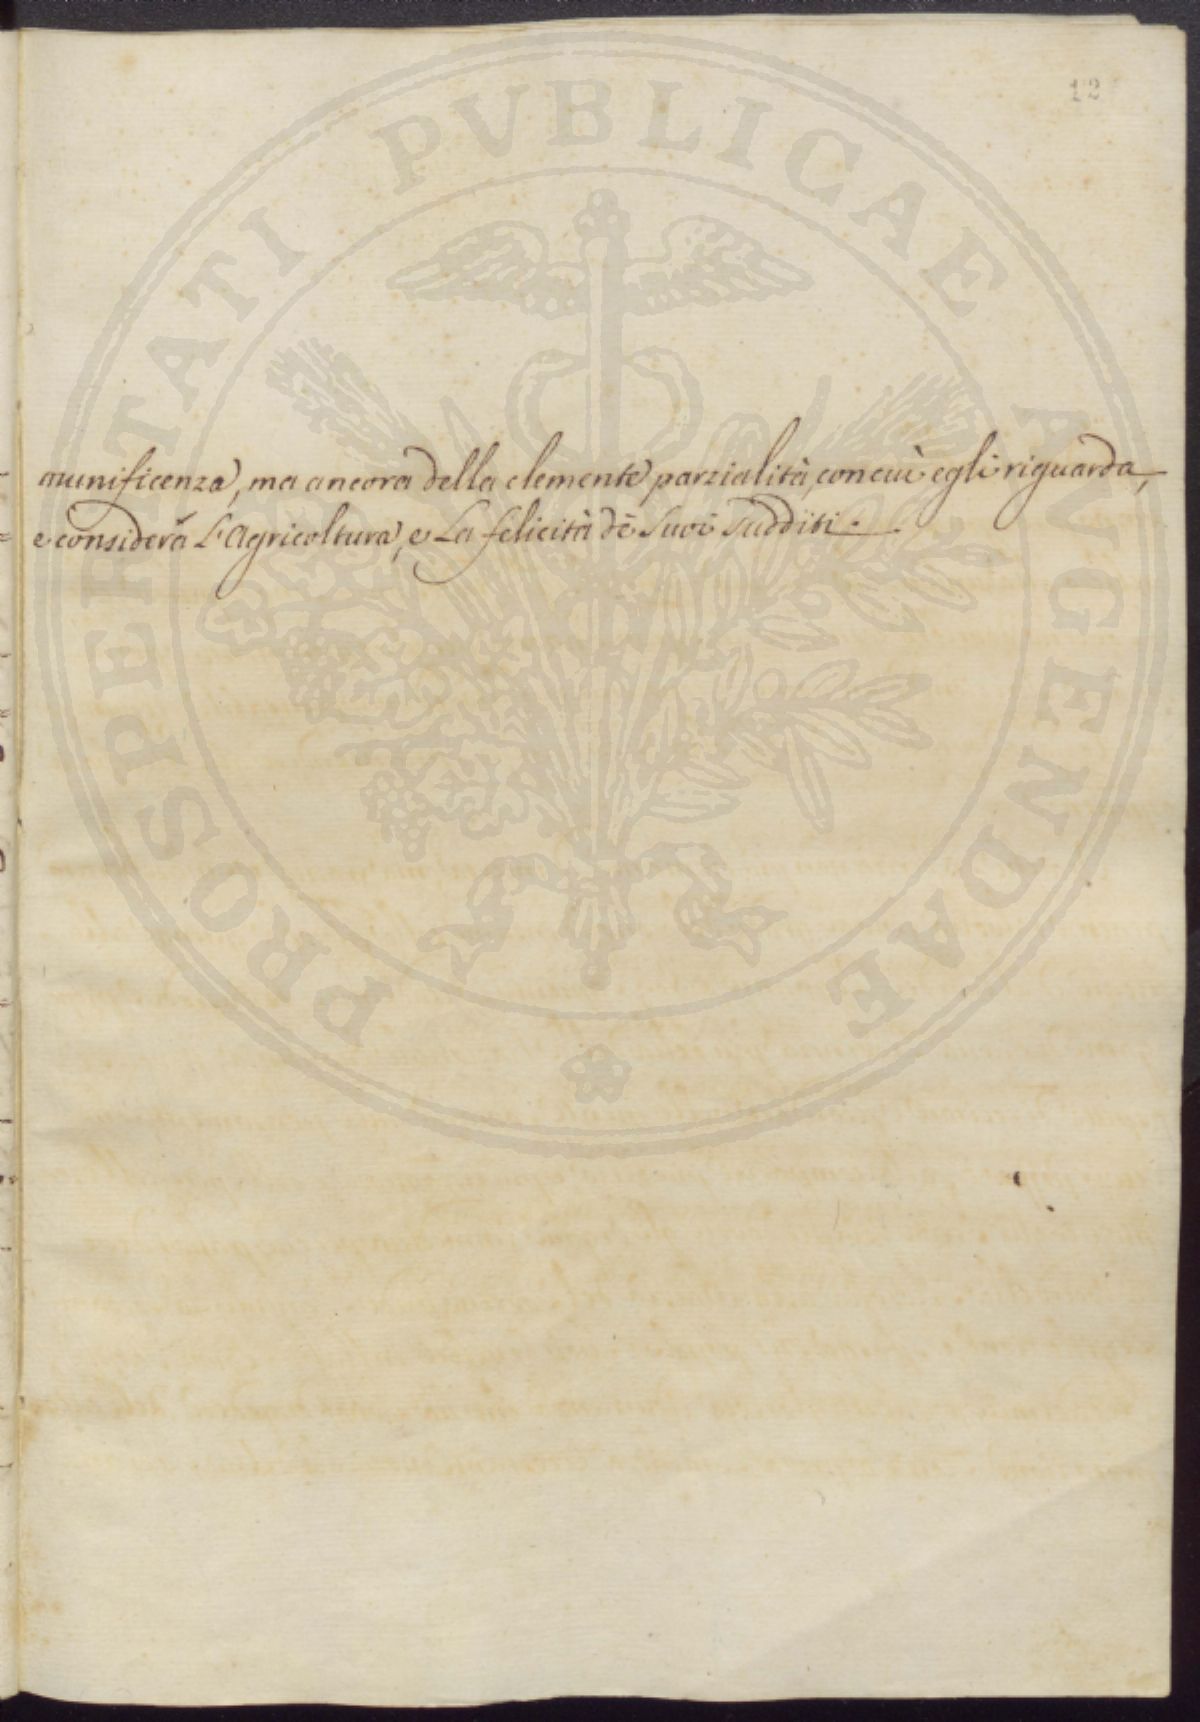 12
PROSPERITATI PVBLICAE AVGENDAE
munificenza, ma ancora della clemente parzialità, con cui egli riguarda,
e considera L'Agricoltura, e La felicità de Suoi Sudditi.